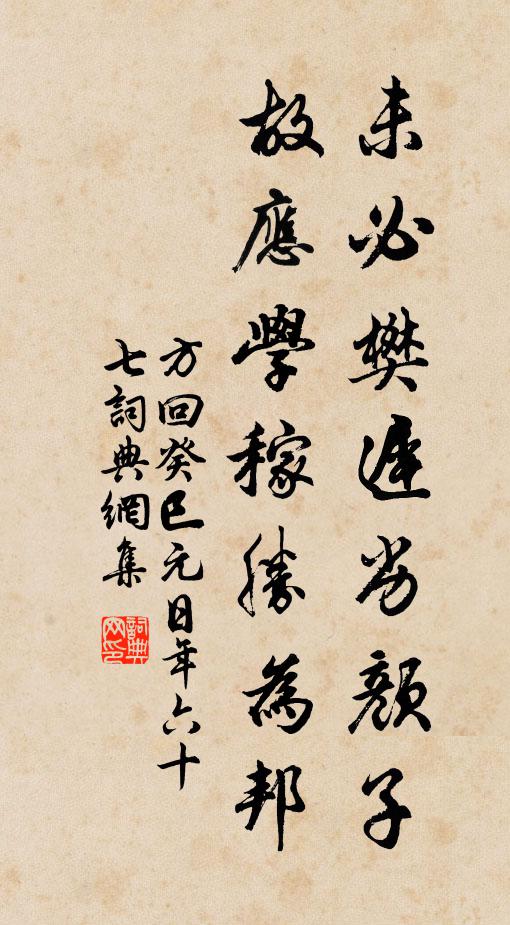 未必樊遲劣顏子
故應學稼勝為邦
方回癸巳元日年六十
七詞典網集
詞典
网印